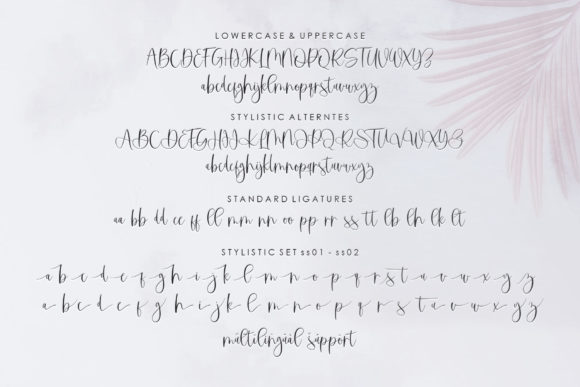 LOWERCASE & UPPERCASE
ABCDEFGHIJKLMNOPQRSTUVWXYZ
abcdefghijklmnopqrstuvwxyz
STYLISTIC ALTERNTES
ABCDEFGHIJKLMNOPQRSTUVWXYZ
abcdefghijklmnopqrstuvwxyz
STANDARD LIGATURES
aa bb dd cc ff ll mm nn oo pp rr ss tt lb lh lk lt
STYLISTIC SET ss01 - ss02
a b c d e f g h i j k l m n o p q r s t u v w x y z
a b c d e f g h i j k l m n o p q r s t u v w x y z
multilingual support